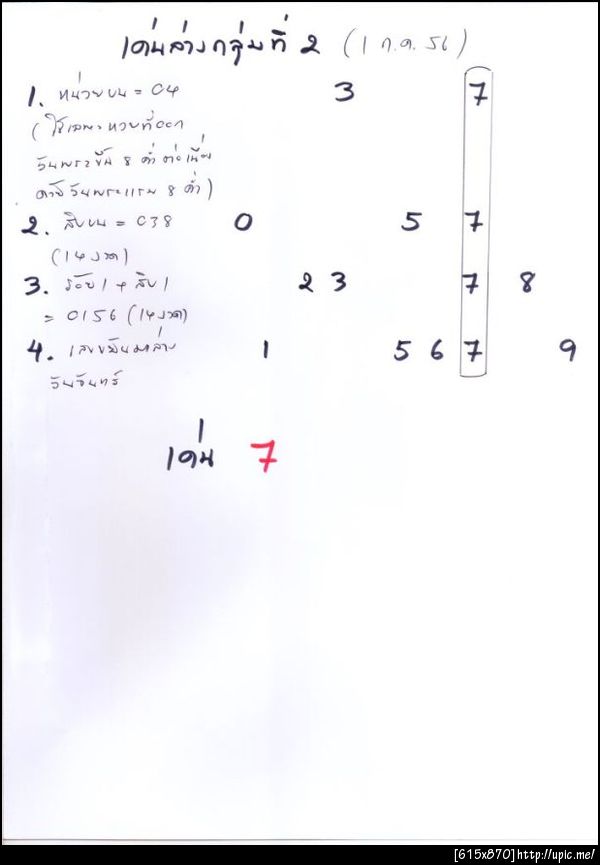 เด่นล่างกลุ่มที่ 2 (1 ก.ค. 56)
1. หน่วยบน = 04 3 7
(ใช้เฉพาะหวยที่ออก
วันพระขึ้น 8 ค่ำ ต่อเนื่อง
วันพระแรม 8 ค่ำ)
2. สิบบน = 038 0 5 7
(14 งวด)
3. ร้อย 1 + สิบ 1 2 3 7 8
= 0156 (14 งวด)
4. เลขยืนล่าง 1 5 6 7 9
วันจันทร์
เด่น 7
[615x870]http://upic.me/